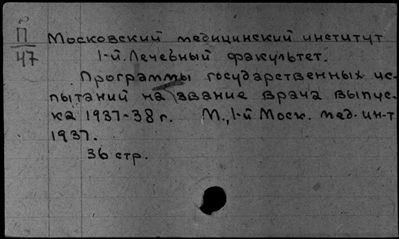 П
47
Московский медицинский институт
1-й. Лечебный факультет.
Программы государственных ис-
пытаний на звание врача выпус-
ка 1937-38 г. М., 1-й Моск. мед. ин-т
1937.
36 стр.